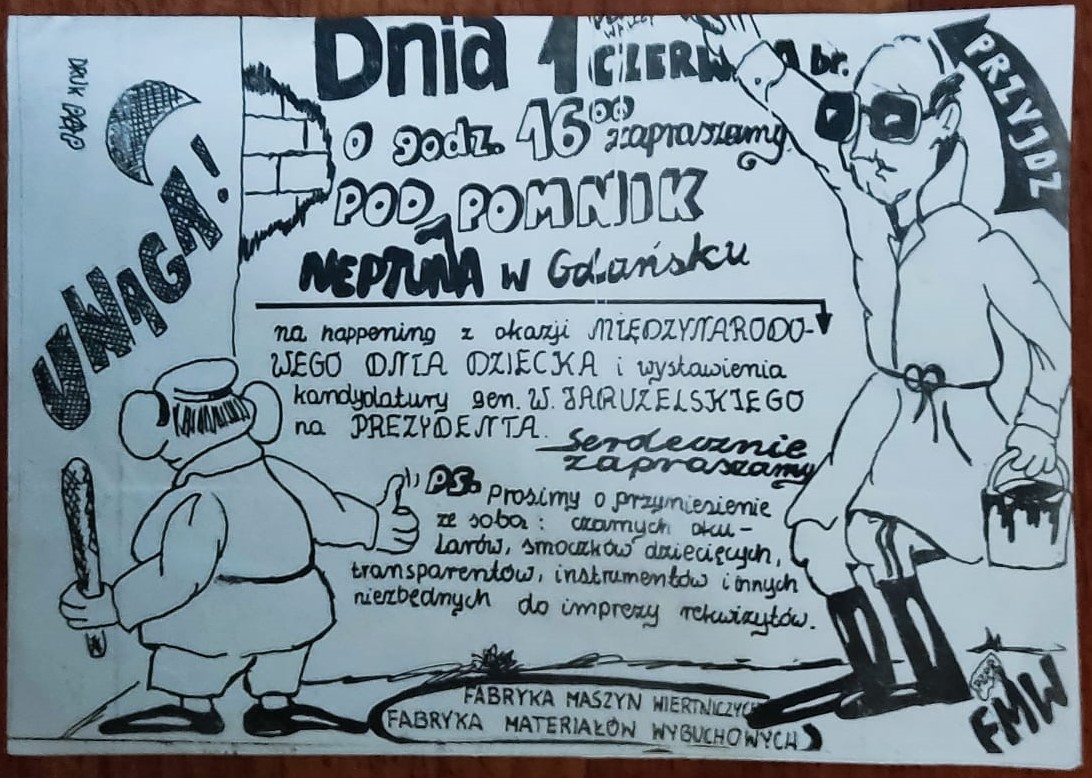 DRUK PAP
UWAGA!
Dnia 1 CZERWCA br.
o godz. 16⁰⁰ zapraszamy
POD POMNIK
NEPTUNA w Gdańsku
na happening z okazji MIĘDZYNARODO-
WEGO DNIA DZIECKA i wystawienia
kandydatury gen. W. JARUZELSKIEGO
na PREZYDENTA.
Serdecznie
zapraszamy
PS. Prosimy o przyniesienie
ze sobą: czarnych oku-
larów, smoczków dziecięcych,
transparentów, instrumentów i innych
niezbędnych do imprezy rekwizytów.
PRZYJDZ
FABRYKA MASZYN WIERTNICZYCH
FABRYKA MATERIAŁÓW WYBUCHOWYCH
FMW